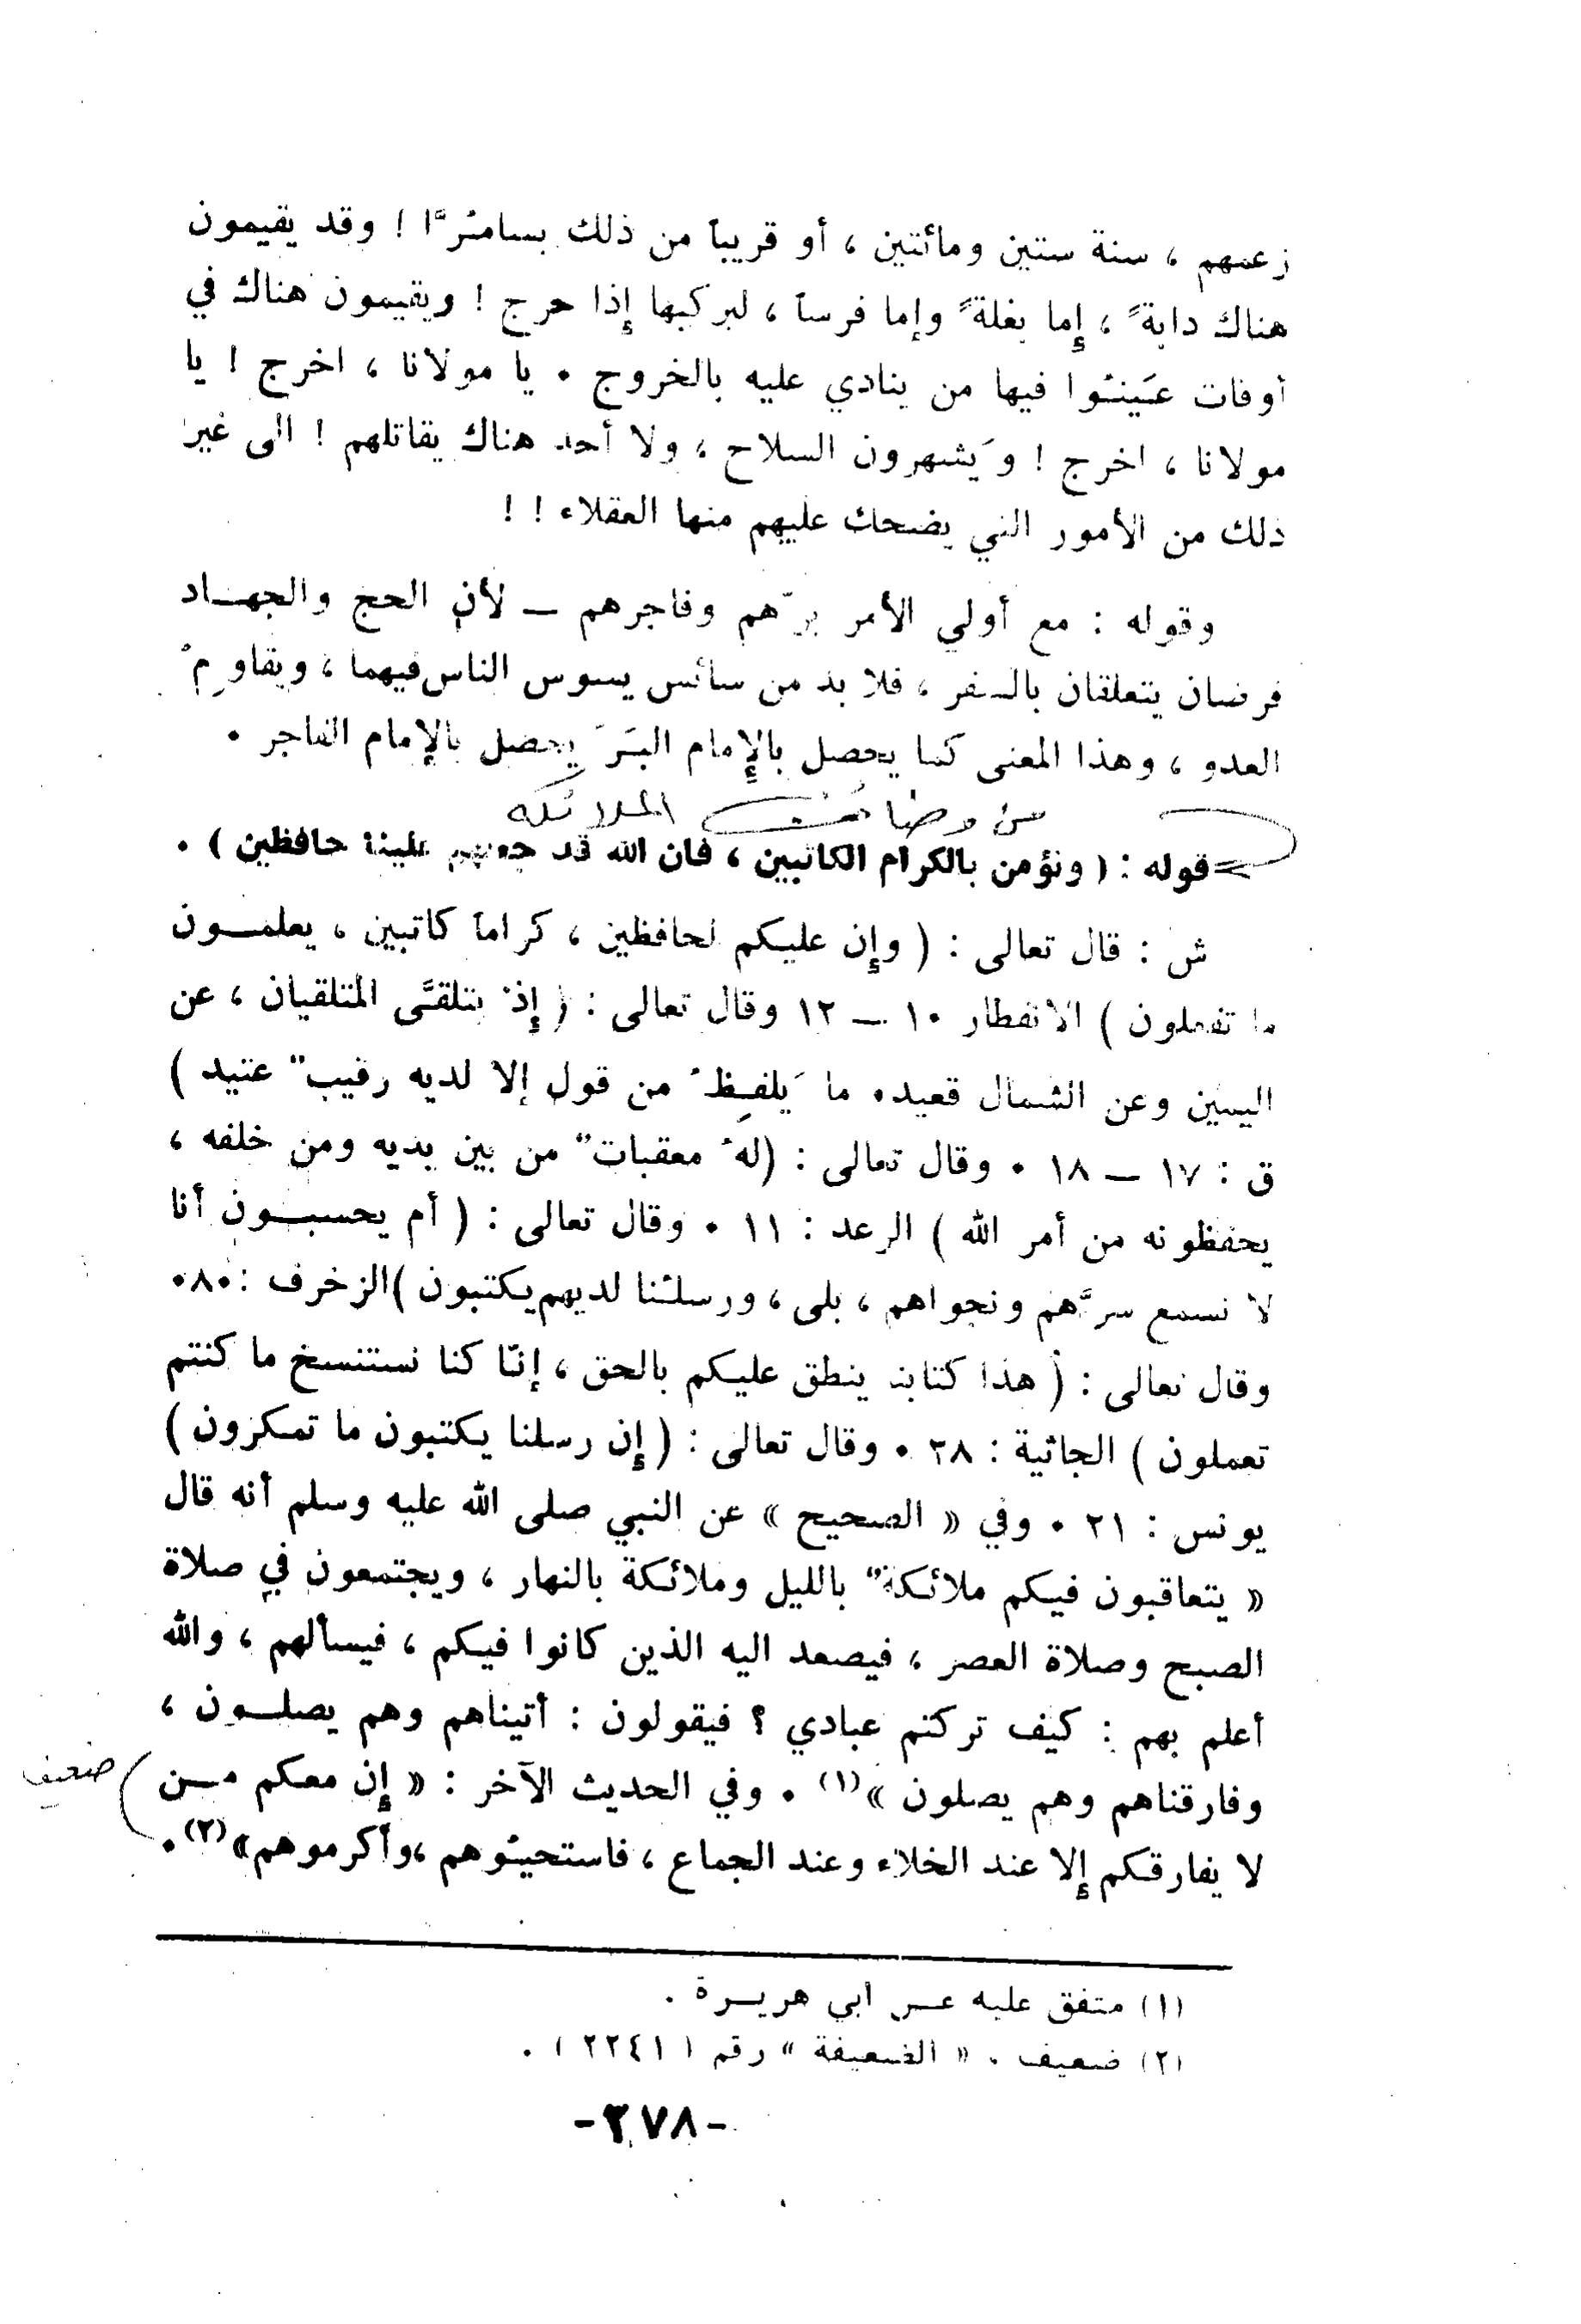 زعمهم ، سنة ستين ومائتين ، أو قريباً من ذلك بسامُرَّا ! وقد يقيمون
هناك دابةً ، إما بغلةً وإما فرساً ، ليركبها إذا خرج ! ويقيمون هناك في
أوقات عَيَّنُوا فيها من ينادي عليه بالخروج . يا مولانا ، اخرج ! يا
مولانا ، اخرج ! وَيشهرون السلاح ، ولا أحد هناك يقاتلهم ! الى غير
ذلك من الأمور التي يضحك عليهم منها العقلاء ! !
وقوله : مع أولي الأمر برّهم وفاجرهم — لأن الحج والجهـاد
فرضان يتعلقان بالسفر ، فلا بد من سائس يسوس الناس فيهما ، ويقاوِمُ
العدو ، وهذا المعنى كما يحصل بالإمام البَرّ يحصل بالإمام الفاجر .
من وضائف الملائكه
قوله : ( ونؤمن بالكرام الكاتبين ، فان الله قد جعلهم علينا حافظين ) .
ش : قال تعالى : ( وإن عليكم لحافظين ، كراماً كاتبين ، يعلمــون
ما تفعلون ) الانفطار ١٠ — ١٢ وقال تعالى : ( إذْ يتلقَّى المتلقيان ، عن
اليمين وعن الشمال قعيد. ما يَلفِظُ من قول إلا لديه رقيبٌ عتيد )
ق : ١٧ — ١٨ . وقال تعالى : (لهُ معقباتٌ من بين يديه ومن خلفه ،
يحفظونه من أمر الله ) الرعد : ١١ . وقال تعالى : ( أم يحسبــون أنا
لا نسمع سرَّهم ونجواهم ، بلى ، ورسلُنا لديهم يكتبون )الزخرف : ٨٠.
وقال تعالى : ( هذا كتابنا ينطق عليكم بالحق ، إنّا كنا نستنسخ ما كنتم
تعملون ) الجاثية : ٢٨ . وقال تعالى : ( إن رسلنا يكتبون ما تمكرون )
يونس : ٢١ . وفي « الصحيح » عن النبي صلى الله عليه وسلم أنه قال
« يتعاقبون فيكم ملائكةٌ بالليل وملائكة بالنهار ، ويجتمعون في صلاة
الصبح وصلاة العصر ، فيصعد اليه الذين كانوا فيكم ، فيسألهم ، والله
أعلم بهم : كيف تركتم عبادي ؟ فيقولون : أتيناهم وهم يصلــون ،
وفارقناهم وهم يصلون »(١) . وفي الحديث الآخر : « إن معكم مــن
ضعيف
لا يفارقكم إلا عند الخلاء وعند الجماع ، فاستحيُوهم ،وأكرموهم»(٢).
(١) متفق عليه عــن أبي هريــرة .
(٢) ضعيف . « الضعيفة » رقم ( ٢٢٤١ ) .
-٣٧٨-